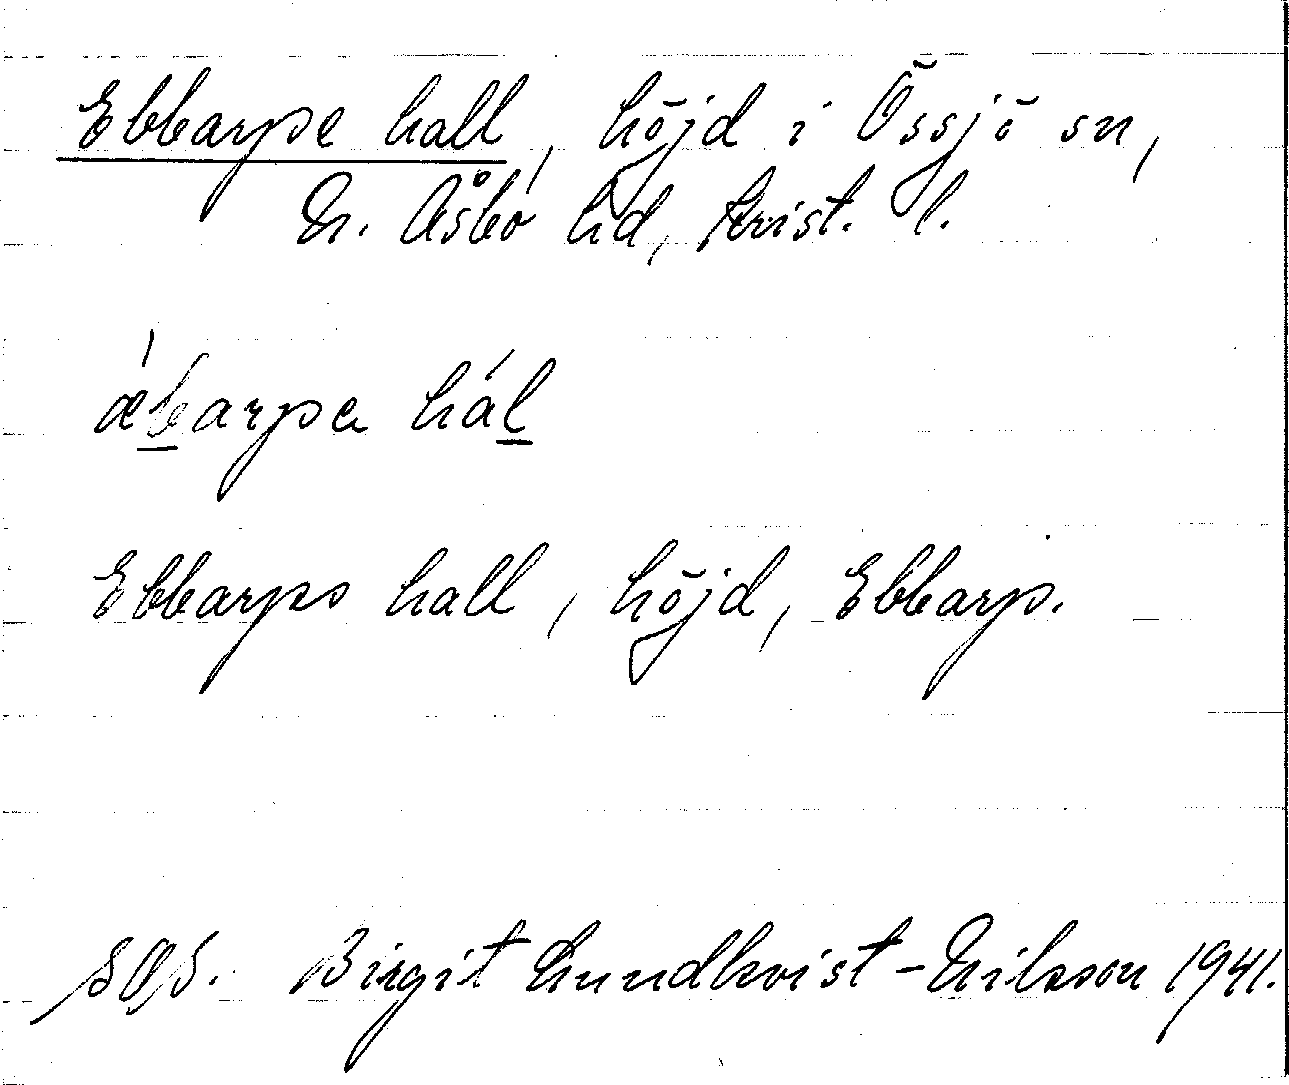 Ebbarpe hall, höjd i Össjö sn,
N. Åsbo hd, Krist. l.
ǽb̲arpa hál̲
Ebbarps hall, höjd, Ebbarp.
Birgit Lundkvist-Nilsson 1941.